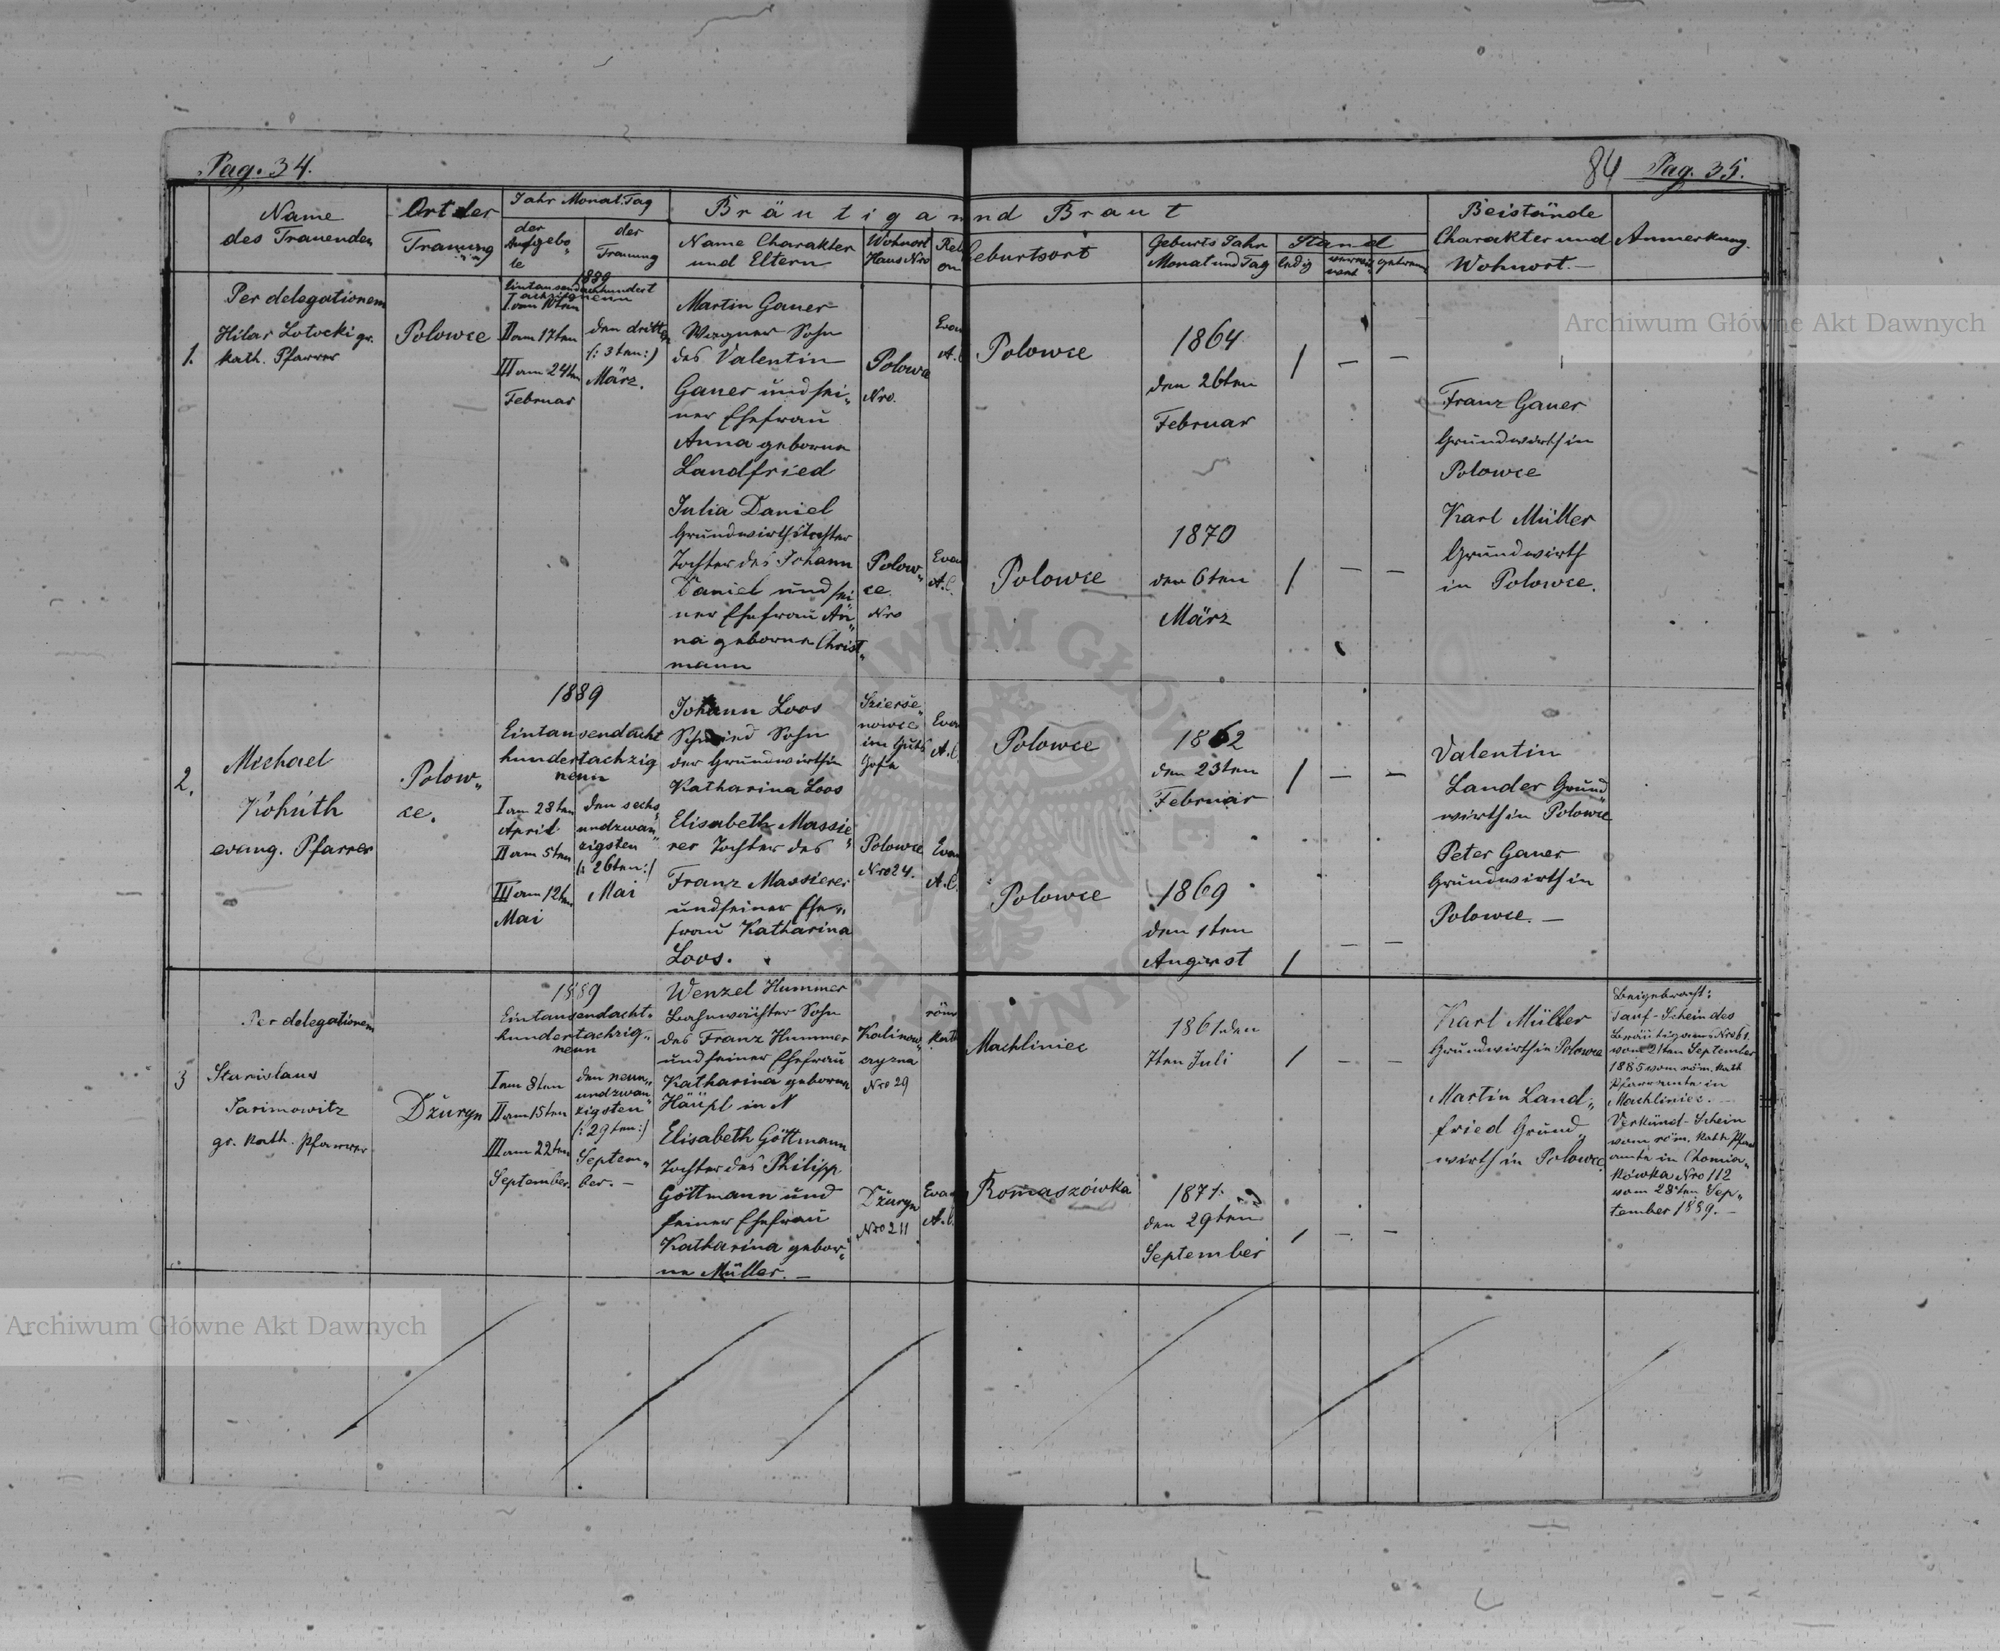 Pag. 34.
84 Pag. 35.
Name
des Trauenden
Ort der
Trauung
Jahr Monat. Tag
der
Aufgebo"
te
der
Trauung
Bräutigam und Braut
Name Charakter
und Eltern
Wohnort
Haus Nro
Reli
on
Geburtsort
Geburts Jahr
Monat und Tag
Stand
ledig
getrennt
Beistände
Charakter und
Wohnort. —
Anmerkung.
1.
Per delegationem
Hilar Lotocki gr.
kath. Pfarrer
Polowce
1889
Eintausendachthundert
achzigneun
I am 10ten
II am 17ten
III am 24ten
Februar
den dritten
(: 3ten :)
März.
Martin Gauer
Wagner Sohn
des Valentin
Gauer und sei"
ner Ehefrau
Anna geborne
Landfried
Polowce
Nro.
Evan
A. C.
Polowce
1864
den 26ten
Februar
/ — —
Franz Gauer
Grundwirth in
Polowce
Karl Müller
Grundwirth
in Polowce.
Julia Daniel
Grundwirthstochter
Tochter des Johann
Daniel und sei
ner Ehefrau An"
na geborne Christ"
mann
Polow"
ce
Nro
Evan
A. C.
Polowce
1870
den 6ten
März
/ — —
2.
Michael
Kohuth
evang. Pfarrer
Polow"
ce.
1889
Eintausendacht
hundertachzig
neun
I am 28ten
April
II am 5ten
III am 12ten
Mai
den sechs
undzwan"
zigsten
(: 26ten :)
Mai
Johann Loos
Schmied Sohn
der Grundwirthin
Katharina Loos
im Guts
hofe
Evan
A. C.
Polowce
1862
den 23ten
Februar
/ — —
Valentin
Lander Grund"
wirth in Polowce
Peter Gauer
Grundwirth in
Polowce. —
Elisabeth Massie"
rer Tochter des
Franz Massierer
und seiner Ehe"
frau Katharina
Loos.
Polowce
Nro 24.
Evan
A. C.
Polowce
1869
den 1ten
August
/ — —
3
Per delegationem
Stanislaus
Jarimowitz
gr. kath. Pfarrer
Džuryn
1889
Eintausendacht"
hundertachzig"
neun
I am 8ten
II am 15ten
III am 22ten
September.
den neun"
undzwan"
zigsten
(: 29ten :)
Septem"
ber. —
Wenzel Hummer
Bahnwächter Sohn
des Franz Hummer
und seiner Ehefrau
Katharina geborne
Häupl in N
Kalinow"
Nro 29
röm
kath
Machliniec
1861 den
7ten Juli
/ — —
Karl Müller
Grundwirth in Polowce
Martin Land"
fried Grund"
wirth in Polowce.
Beigebracht:
Tauf-Schein des
Bräutigams Nro 61
vom 21ten September
1885 vom röm. kath
Pfarramte in
Machliniec. —
Verkünd-Schein
vom röm. kath. Pfarr
amte in Chomia"
kówka Nro 112
vom 28ten Sep"
tember 1889. —
Elisabeth Göttmann
Tochter des Philipp
Göttmann und
seiner Ehefrau
Katharina gebor"
ne Müller. —
Džuryn
Nro 211
Evan
A. C.
Romaszówka
1871.
den 29ten
September
/ — —
Archiwum Główne Akt Dawnych
Archiwum Główne Akt Dawnych
ARCHIWUM GŁÓWNE AKT DAWNYCH